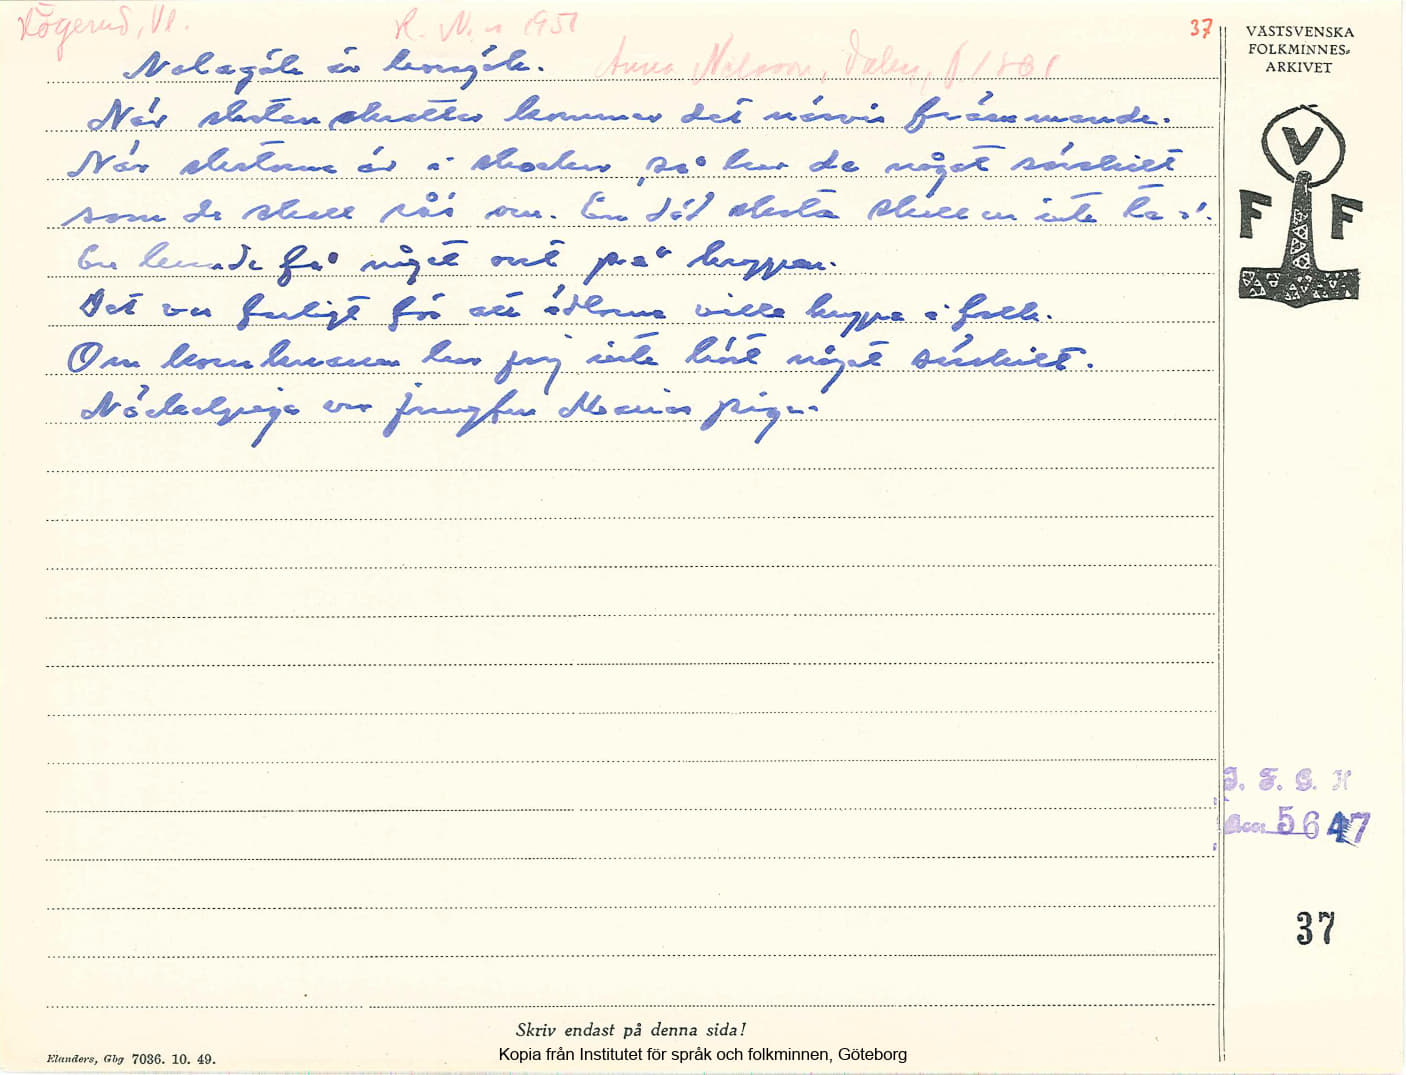 Högerud, Vl.
R. N-n 1951
37
Anna Nelsson, Dalen, f. 1881
Nolagök är korngök.
När skatan skrattar kommer det närvis främmande.
När skatorna är i skocker så har de något särskilt
som de skall rås om. En död skata skall en inte ta i.
En kunde få något ont på kroppen.
Det var farligt för att ådlorna ville hugga i folk.
Om kornknarren har jag inte hört något särskilt.
Nöckelpiga var jungfru Marias piga.
VÄSTSVENSKA
FOLKMINNES-
ARKIVET
V
F F
I. F. G. H
Acc 5647
37
Skriv endast på denna sida!
Elanders, Gbg 7036. 10. 49.
Kopia från Institutet för språk och folkminnen, Göteborg